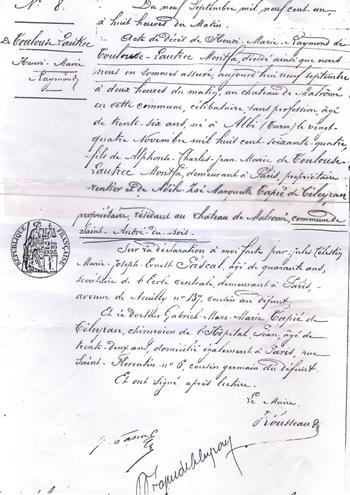 N° 8.
De Toulouse-Lautrec
Henri-Marie
Raymond
Du neuf Septembre mil neuf cent un,
à huit heures du Matin.
Acte de décès de Henri-Marie-Raymond de
Toulouse-Lautrec Monfa, décédé ainsi que nous
nous en sommes assuré, aujourd'hui neuf septembre
à deux heures du matin, au château de Malromé
en cette commune, célibataire sans profession, âgé
de trente-six ans, né à Albi (Tarn) le vingt-
quatre Novembre mil huit cent soixante-quatre,
fils de Alphonse-Charles-Jean-Marie de Toulouse-
Lautrec Monfa, demeurant à Paris, propriétaire
rentier et de Adèle Zoë Marquette Tapié de Céleyran
propriétaire résidant au château de Malromé, commune de
Saint-André-du-Bois.
Sur la déclaration à moi faite par: Jules Célestin
Marie-Joseph-Ernest Pascal, âgé de quarante ans,
secrétaire de l'école centrale, demeurant à Paris-
avenue de Neuilly n° 137, cousin du défunt
Et Le Docteur Gabriel-Marc-Marie Tapié de
Céleyran, chirurgien de l'Hôpital Péan, âgé de
trente-deux ans, domicilié également à Paris, rue
Saint-Florentin n° 6, cousin germain du défunt.
Et ont signé après lecture.
Le Maire,
Rousseau
J. Pascal
RÉPUBLIQUE FRANÇAISE